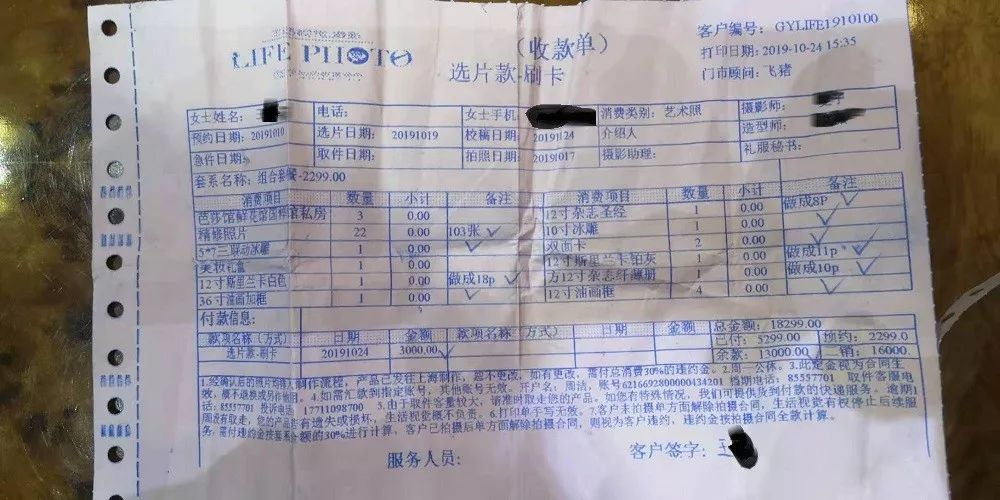 LIFE PHOTO
(收款单)
选片款-刷卡
客户编号: GYLIFE1910100
打印日期: 2019-10-24 15:35
门市顾问: 飞猪
女士姓名: 电话: 女士手机 消费类别: 艺术照 摄影师:
预约日期: 20191010 选片日期: 20191019 校稿日期: 20191124 介绍人 造型师:
急件日期: 取件日期: 拍照日期: 20191017 摄影助理: 礼服秘书:
套系名称: 组合套餐-2299.00
消费项目 数量 小计 备注 消费项目 数量 小计 备注
3 0.00 12寸杂志圣经 1 0.00 做成8P
精修照片 22 0.00 103张 10寸冰雕 1 0.00
5*7三联动冰雕 1 0.00 双面卡 2 0.00
美妆礼盒 1 0.00 12寸斯里兰卡铂灰 1 0.00 做成11p
12寸斯里兰卡白色 1 0.00 做成18p 方12寸杂志纤薄册 1 0.00 做成10p
36寸油画加框 1 0.00 12寸油画框 4 0.00
付款信息:
款项名称(方式) 日期 金额 款项名称(方式) 日期 金额 总金额: 18299.00
选片款-刷卡 20191024 3000.00 已付: 5299.00 预约: 2299.0
余款: 13000.00 二销: 16000.
1.经确认后的照片均待入制作流程,产品已发往上海制作,恕不更改,如有更改,需付总消费30%的违约金。2.周一公休。3.此定金视为合同生
效,概不退换或另作他用。4.如需汇款到指定账号,其他账号无效。开户名:周洁,账号6216692800000434201 档期电话: 85557701 取件客服电
话: 85557701 投诉电话: 17711098700 5.由于取件客量较大,请准时取走您的产品。如您有特殊情况,我们可提供货到付款的快递服务。逾期1
周没有取走,您的产品若有遗失或损坏,生活视觉概不负责。6.打印单手写无效。7.客户未拍摄单方面解除拍摄合同,生活视觉有权停止后续服
务,需付违约金按套系全额的30%进行计算。客户已拍摄后单方面解除拍摄合同,则视为客户违约,违约金按拍摄合同全款计算。
服务人员: 客户签字: 王